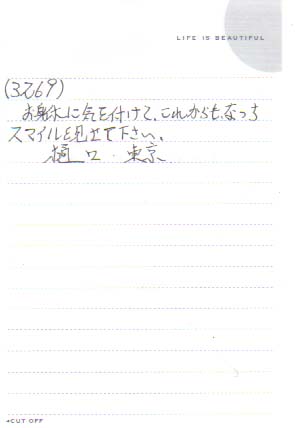 LIFE IS BEAUTIFUL
(3269)
お身体に気を付けて、これからも、なっち
スマイルを見せて下さい。
樋口 東京
◂CUT OFF